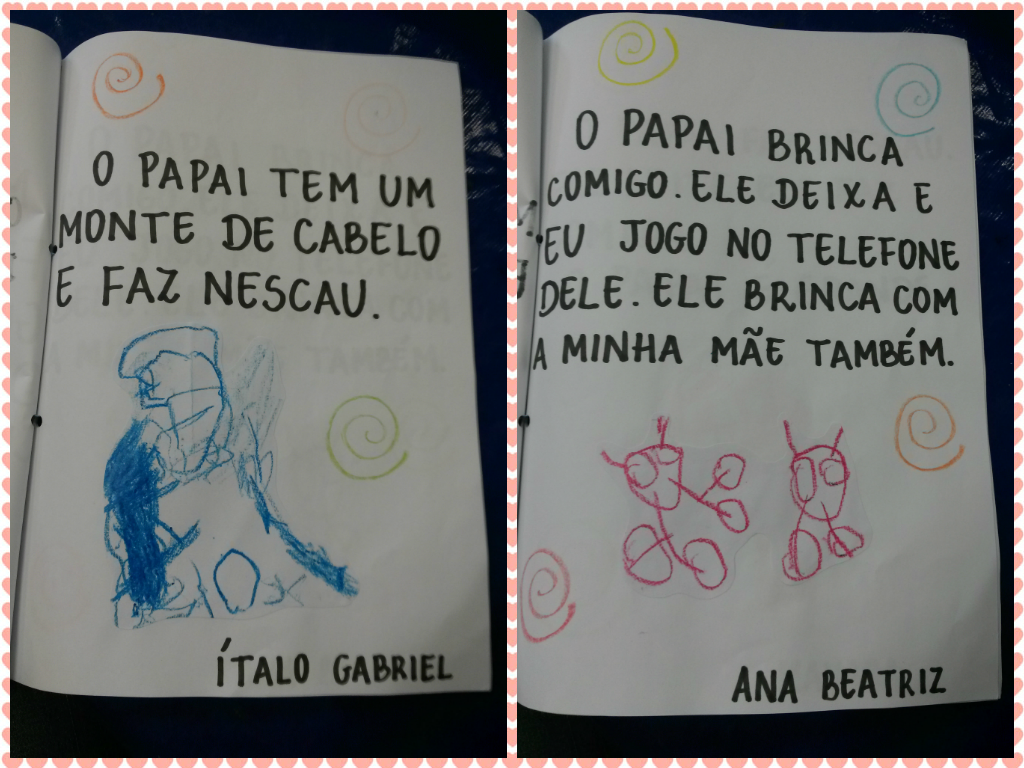 O PAPAI TEM UM
MONTE DE CABELO
E FAZ NESCAU.
ÍTALO GABRIEL
O PAPAI BRINCA
COMIGO. ELE DEIXA E
EU JOGO NO TELEFONE
DELE. ELE BRINCA COM
A MINHA MÃE TAMBÉM.
ANA BEATRIZ